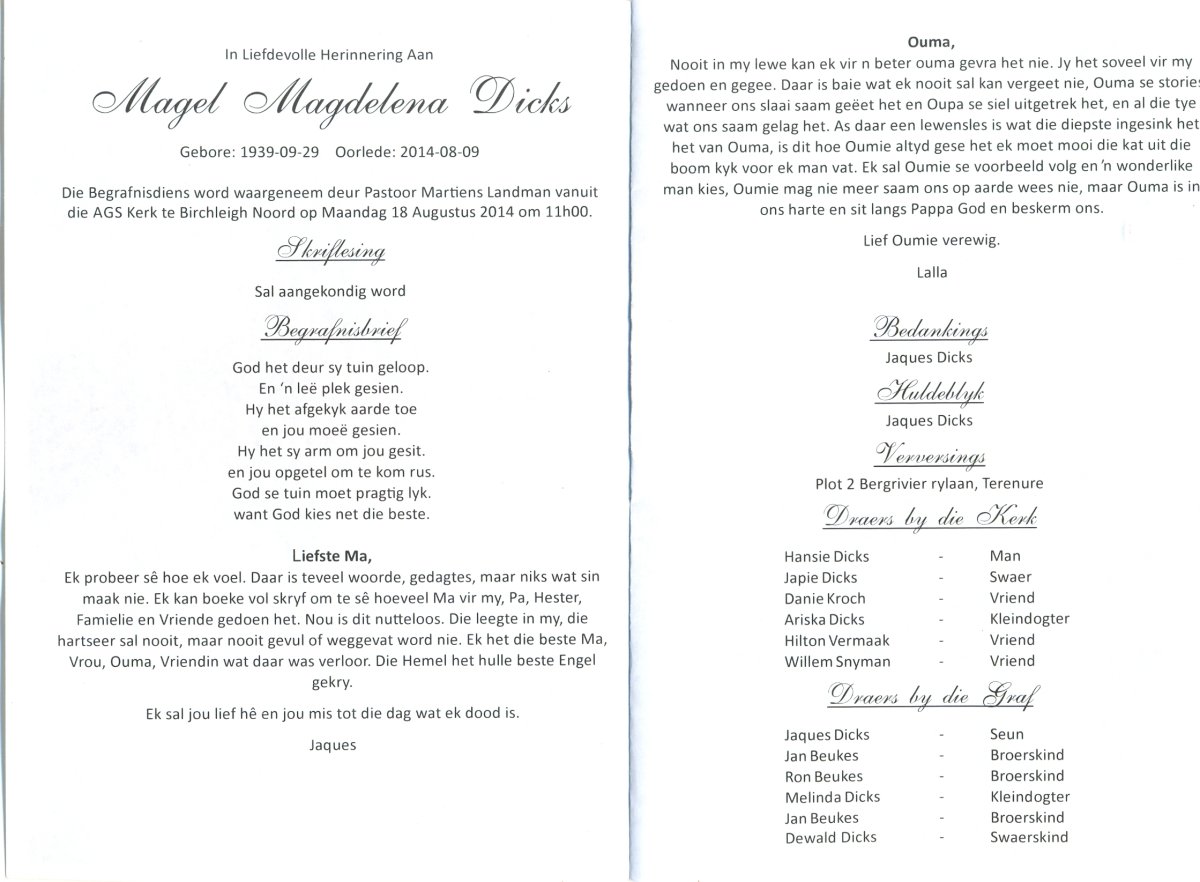 In Liefdevolle Herinnering Aan
Magel Magdelena Dicks
Gebore: 1939-09-29 Oorlede: 2014-08-09
Die Begrafnisdiens word waargeneem deur Pastoor Martiens Landman vanuit
die AGS Kerk te Birchleigh Noord op Maandag 18 Augustus 2014 om 11h00.
Skriflesing
Sal aangekondig word
Begrafnisbrief
God het deur sy tuin geloop.
En ‘n leë plek gesien.
Hy het afgekyk aarde toe
en jou moeë gesien.
Hy het sy arm om jou gesit.
en jou opgetel om te kom rus.
God se tuin moet pragtig lyk.
want God kies net die beste.
Liefste Ma,
Ek probeer sê hoe ek voel. Daar is teveel woorde, gedagtes, maar niks wat sin
maak nie. Ek kan boeke vol skryf om te sê hoeveel Ma vir my, Pa, Hester,
Famielie en Vriende gedoen het. Nou is dit nutteloos. Die leegte in my, die
hartseer sal nooit, maar nooit gevul of weggevat word nie. Ek het die beste Ma,
Vrou, Ouma, Vriendin wat daar was verloor. Die Hemel het hulle beste Engel
gekry.
Ek sal jou lief hê en jou mis tot die dag wat ek dood is.
Jaques
Ouma,
Nooit in my lewe kan ek vir n beter ouma gevra het nie. Jy het soveel vir my
gedoen en gegee. Daar is baie wat ek nooit sal kan vergeet nie, Ouma se stories
wanneer ons slaai saam geëet het en Oupa se siel uitgetrek het, en al die tye
wat ons saam gelag het. As daar een lewensles is wat die diepste ingesink het
het van Ouma, is dit hoe Oumie altyd gese het ek moet mooi die kat uit die
boom kyk voor ek man vat. Ek sal Oumie se voorbeeld volg en ’n wonderlike
man kies, Oumie mag nie meer saam ons op aarde wees nie, maar Ouma is in
ons harte en sit langs Pappa God en beskerm ons.
Lief Oumie verewig.
Lalla
Bedankings
Jaques Dicks
Huldeblyk
Jaques Dicks
Verversings
Plot 2 Bergrivier rylaan, Terenure
Draers by die Kerk
Hansie Dicks - Man
Japie Dicks - Swaer
Danie Kroch - Vriend
Ariska Dicks - Kleindogter
Hilton Vermaak - Vriend
Willem Snyman - Vriend
Draers by die Graf
Jaques Dicks - Seun
Jan Beukes - Broerskind
Ron Beukes - Broerskind
Melinda Dicks - Kleindogter
Jan Beukes - Broerskind
Dewald Dicks - Swaerskind